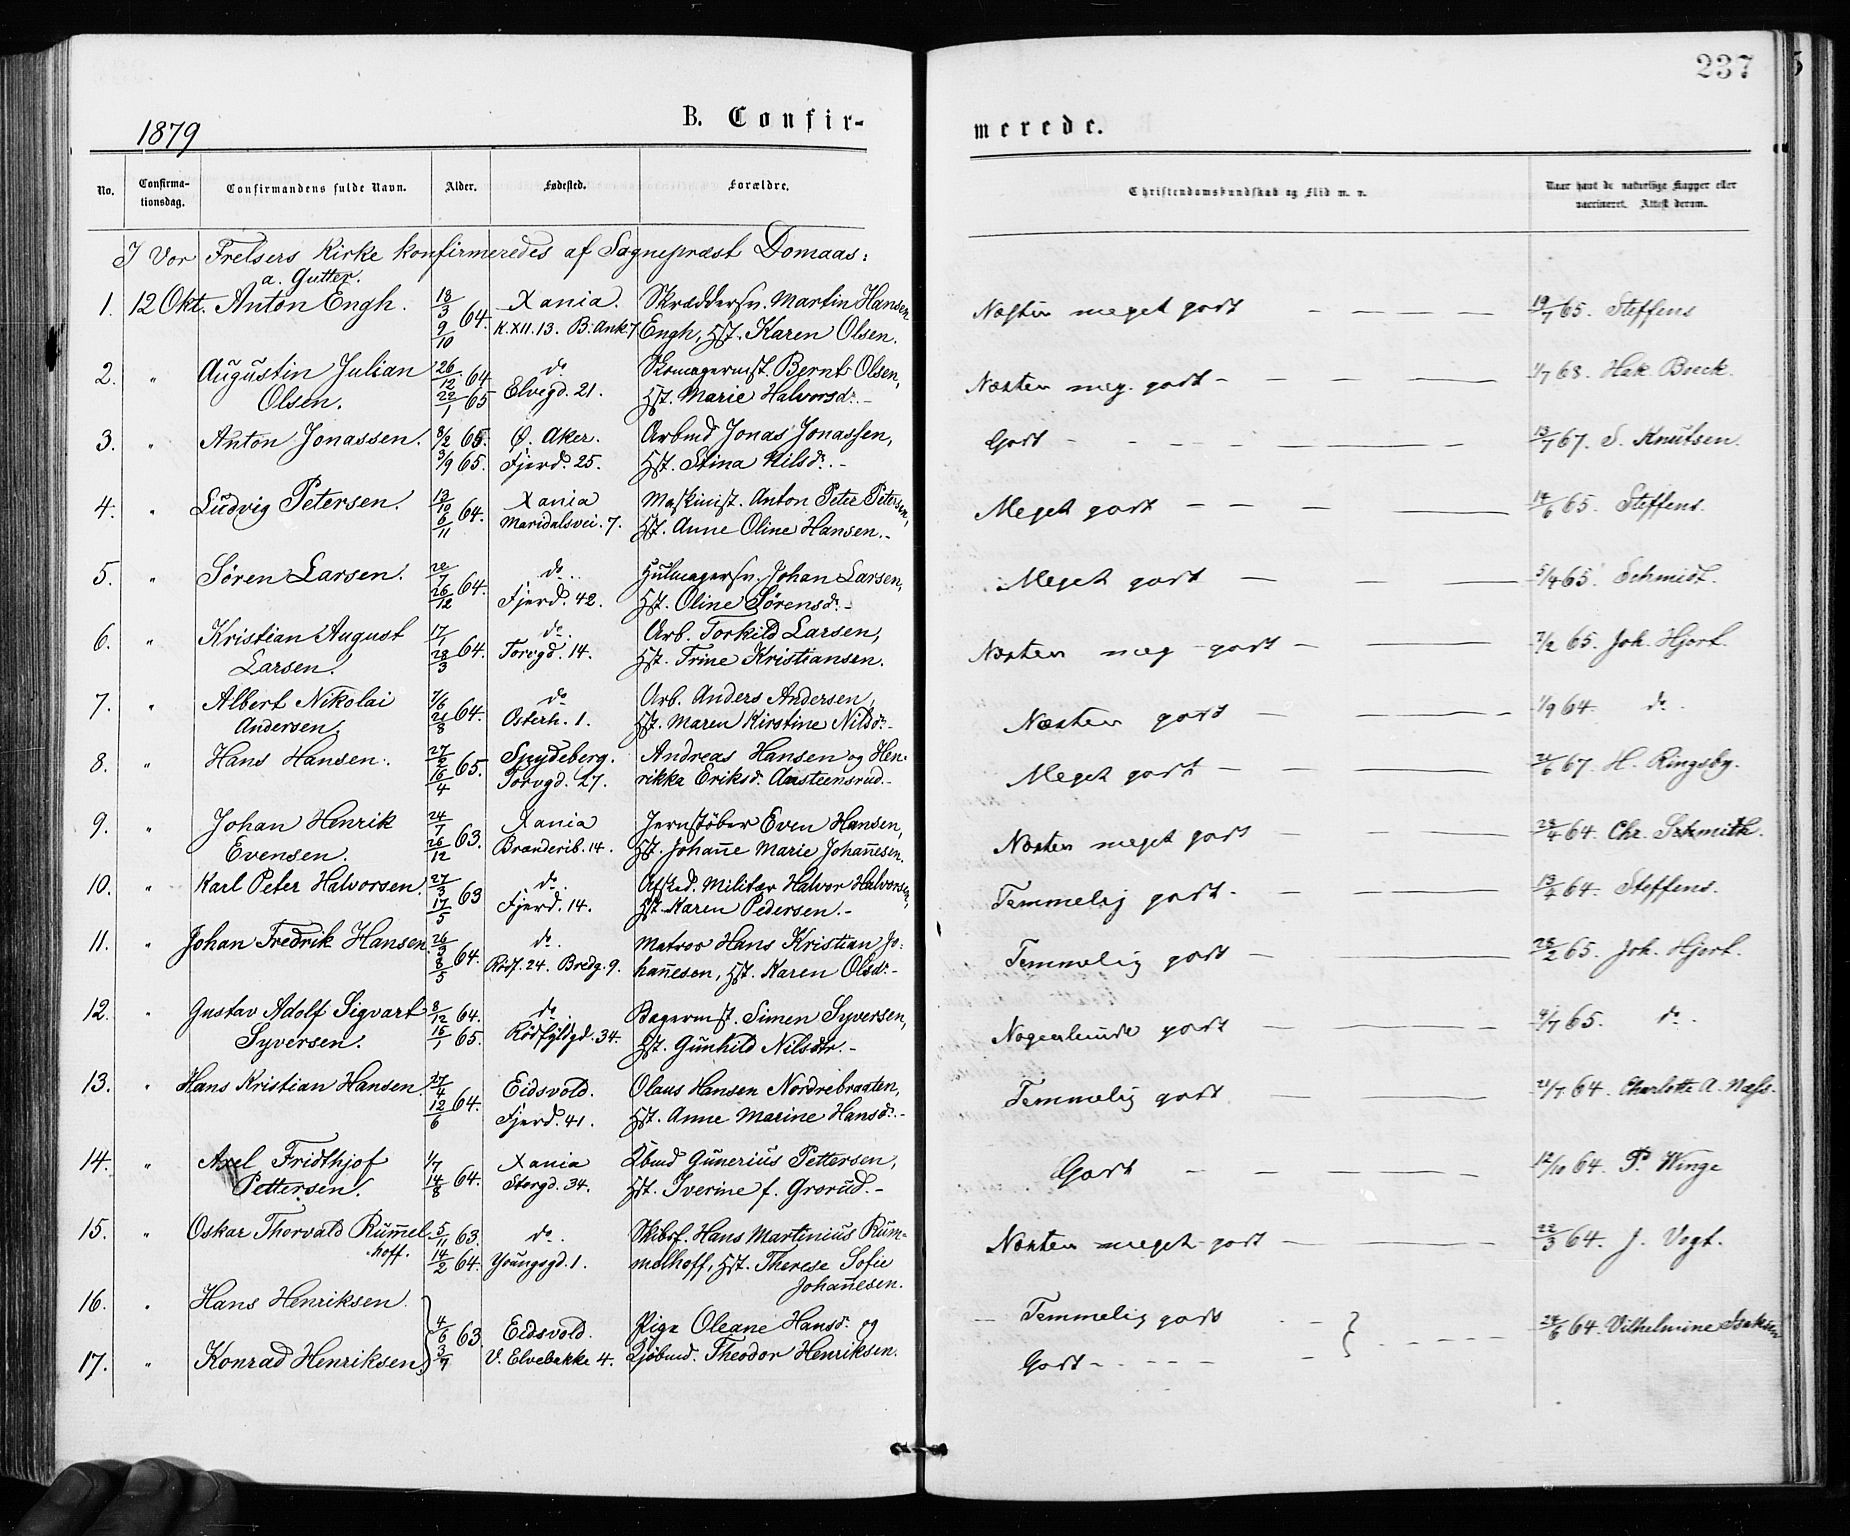 237
1879
B. Confir-
merede.
No.
Confirma-
tionsdag.
Confirmandens fulde Navn.
Alder.
Fødested.
Forældre.
Christendomskundskab og Flid m. v.
Naar havt de naturlige Kopper eller
vaccineret. Attest derom.
I Vor Frelsers Kirke konfirmeredes af Sognepræst Domaas:
a. Gutter.
1. 12 Okt. Anton Engh. 18/3 64. Xania. Skræddersv. Martin Hansen Næsten meget godt 19/7 65. Steffens
9/10 K.XII.13. B. Ank. 7 Engh, Hst. Karen Olsen.
2. " Augustin Julian 26/12 64 do Skomagermst. Bernt Olsen, Næsten meg. godt 1/7 68. Hak. Boeck.
Olsen. 22/1 65 Elvegd. 21. Hst. Marie Halvorsdr.
3. " Anton Jonassen. 8/2 65. Ø. Aker. Arbmd Jonas Jonassen, Godt 13/7 67. S. Knutsen.
3/9 65. Fjerd. 25. Hst. Stina Nilsdr.
4. " Ludvig Petersen. 13/10 64. Xania Maskinist. Anton Peter Petersen, Meget godt 14/6 65. Steffens.
6/11 Maridalsvei. 7. Hst. Anne Oline Hansen.
5. " Søren Larsen. 20/7 64. do. Hulmagersv. Johan Larsen, Meget godt 5/4 65 Schmidt.
26/12 Fjerd. 42. Hst. Oline Sørensdr.
6. " Kristian August 17/1 64. do. Arb. Torkild Larsen, Næsten meg godt 7/2 65. Joh. Hjort.
Larsen. 28/3 Torvgd. 14. Hst. Trine Kristiansen.
7. " Albert Nikolai 7/6 64. do Arb. Anders Andersen, Næsten godt 1/9 64. do.
Andersen. 21/8 Osterh. 1. Hst. Maren Kirstine Nilsdr.
8. " Hans Hansen. 27/2 65. Spydeberg. Andreas Hansen og Hen- Meget godt 26/6 67. H. Ringsby.
16/4 Torvgd. 27. rikke Eriksdr. Austeensrud.
9. " Johan Henrik 24/7 63. Xania Jernstøber Even Hansen, Næsten meget godt 28/4 64. Chr. Schmith.
Evensen. 26/12 Brænderib. 14. Hst. Johanne Marie Johannesen.
10. " Karl Peter Halvorsen. 27/3 63 do. Afsked. Militær Halvor Halvorsen, Temmelig godt 13/4 64. Steffens.
17/5 Fjerd. 14. Hst. Karen Pedersen.
11. " Johan Fredrik Hansen. 26/3 64. do. Matros Hans Kristian Jo- Temmelig godt 28/2 65. Joh. Hjort.
8/5 Rødf. 24. Bredg. 9. hannesen, Hst. Karen Olsdr.
12. " Gustav Adolf Sigvart 8/12 64. do. Bagermst. Simen Syversen, Nogenlunde godt 4/7 65. do.
Syversen. 15/1 65. Rødfyldgd. 34. Hst. Gunhild Nilsdtr.
13. " Hans Kristian Hansen. 27/4 64. Eidsvold. Olaus Hansen Nordrebraaten, Temmelig godt 21/7 64. Charlotte A. Næss.
12/6 Fjerd. 41. Hst. Anne Marine Hansdr.
14. " Axel Fridthjof 1/7 64. Xania Gunerius Pettersen, Godt 12/10 64. P. Winge
Pettersen. 14/8 Storgd. 34. Hst. Iverine f. Grorud.
15. " Oskar Thorvald Rummel- 5/11 63. do. Skibsf. Hans Martinius Rum- Næsten meget godt 22/3 64. J. Vogt.
hoff. 14/2 64. Youngsgd. 1. melhoff, Hst. Therese Sofie
Johannesen.
16. " Hans Henriksen. Temmelig godt
4/6 63. Eidsvold. Pige Oleane Hansdr. og 24/6 64. Vilhelmine Isaksen
17. " Konrad Henriksen 3/7 V. Elvebakke 4. Kjøbmd. Theodor Henriksen. Godt